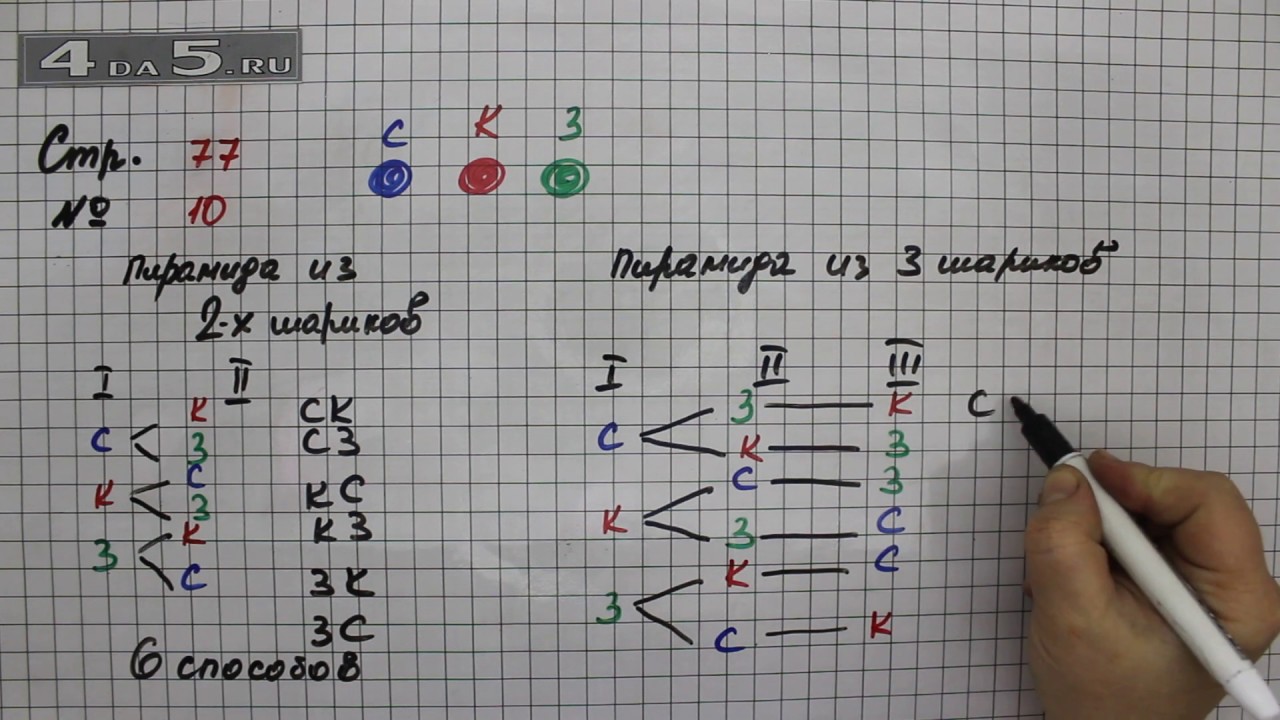 4DA5.RU
Стр. 77
№ 10
С К З
Пирамида из
2-х шариков
I II
С К
З
К С
З
З К
С
СК
СЗ
КС
КЗ
ЗК
ЗС
6 способов
Пирамида из 3 шариков
I II III
С З К
К З
К С З
З С
З К С
С К
С